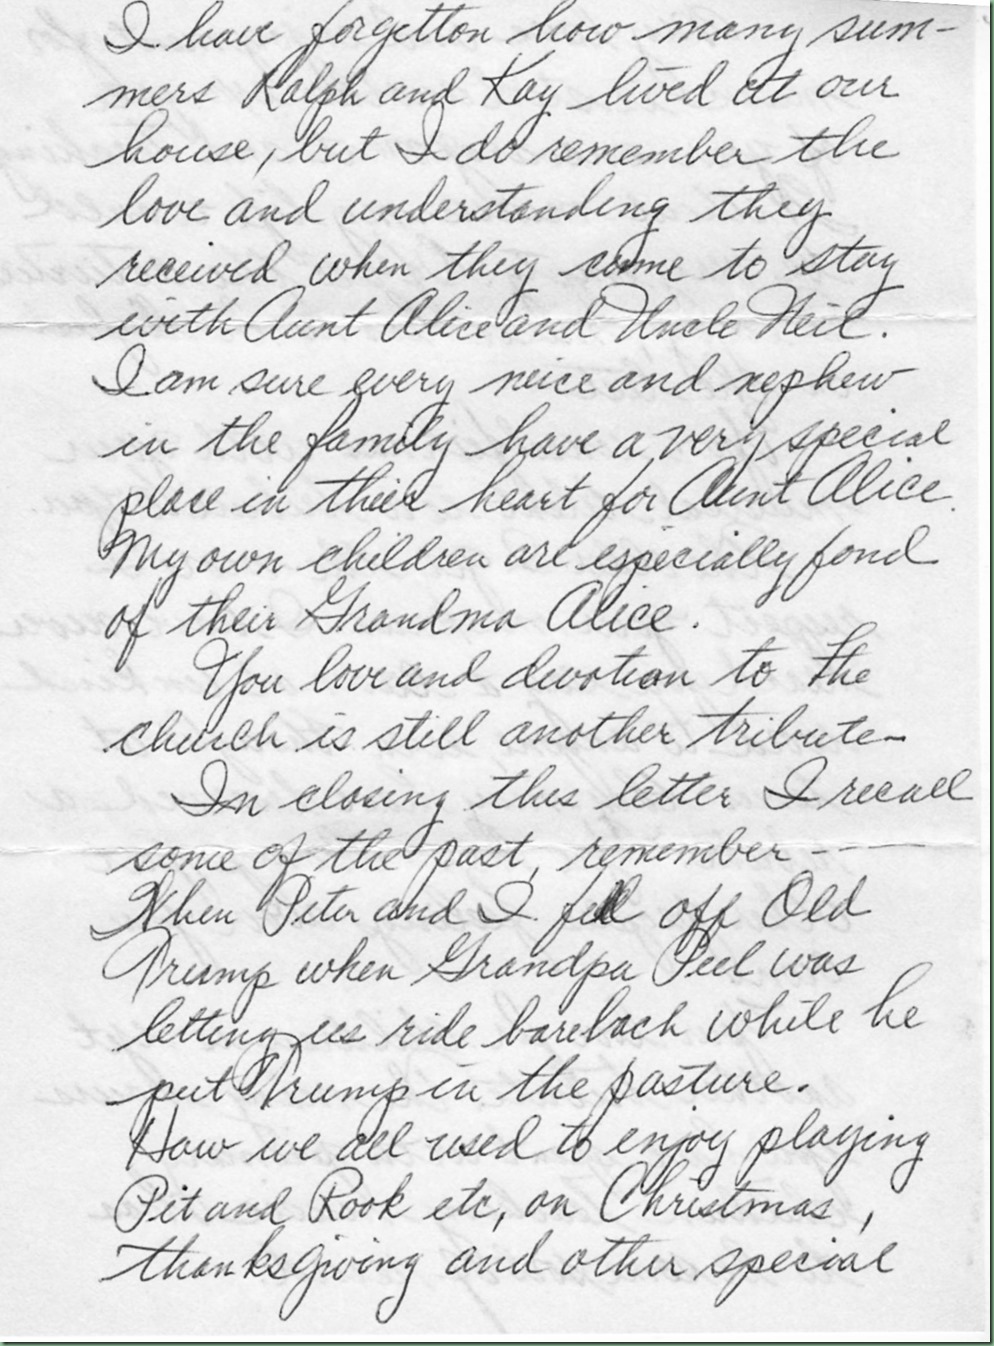 I have forgetton how many sum-
mers Ralph and Kay lived at our
house, but I do remember the
love and understanding they
received when they come to stay
with Aunt Alice and Uncle Neil.
I am sure every neice and nephew
in the family have a very special
place in their heart for Aunt Alice.
My own children are especially fond
of their Grandma Alice.
You love and devotion to the
church is still another tribute-
In closing this letter I recall
some of the past, remember ----
When Peter and I fell off Old
Trump when Grandpa Peel was
letting us ride bareback while he
put Trump in the pasture.
How we all used to enjoy playing
Pit and Rook etc, on Christmas,
thanksgiving and other special